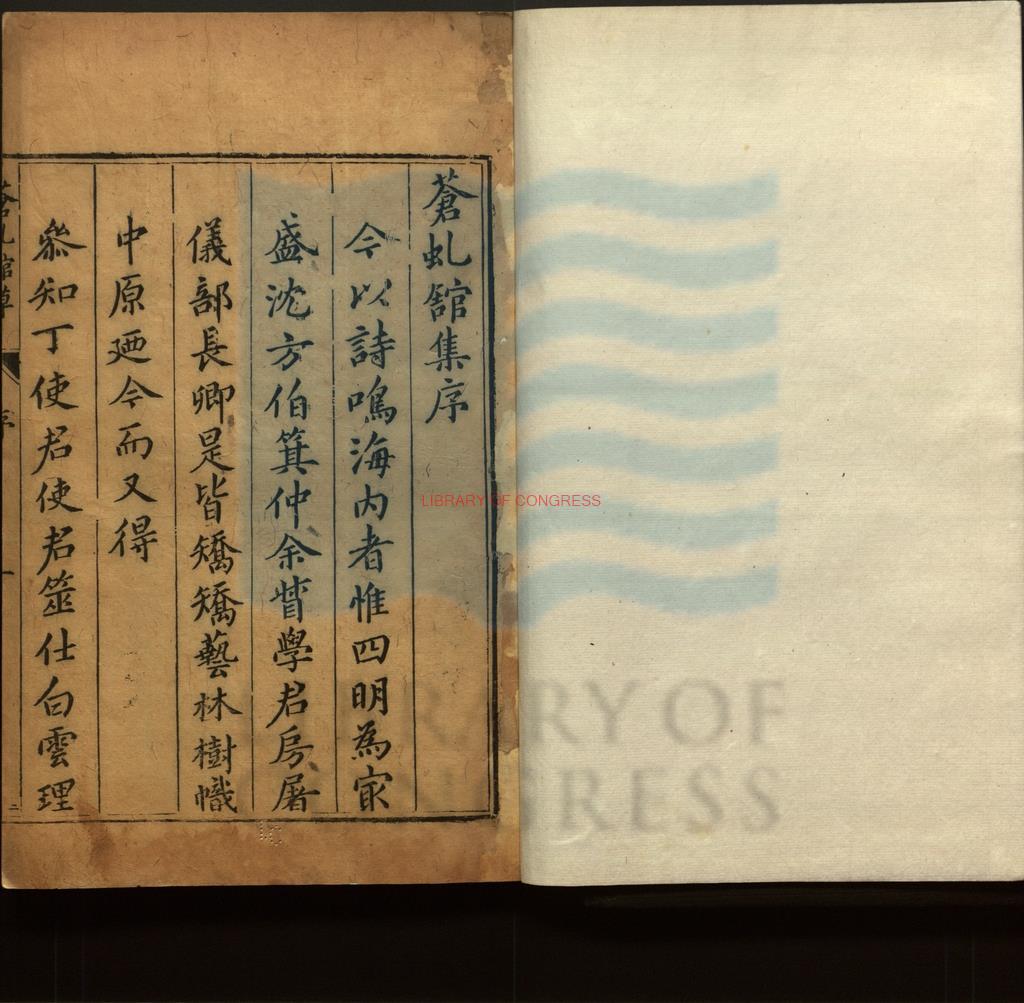 蒼虬館集序
今以詩鳴海内者惟四明為㝡
盛沈方伯箕仲余督學君房屠
儀部長卿是皆矯矯藝林樹幟
中原廼今而又得
叅知丁使君使君筮仕白雲理
蒼虬館草
序
一
LIBRARY OF CONGRESS
LIBRARY OF
CONGRESS